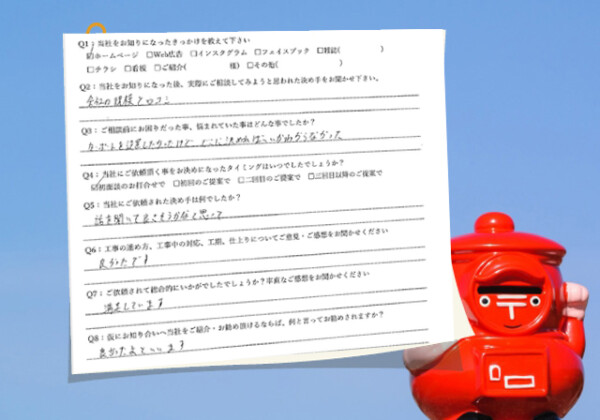 Q1：当社をお知りになったきっかけを教えて下さい
☑ホームページ　□Web広告　□インスタグラム　□フェイスブック　□雑誌(　　　)
□チラシ　□看板　□ご紹介(　　　様)　□その他(　　　)
Q2：当社をお知りになった後、実際にご相談してみようと思われた決め手をお聞かせ下さい。
会社の規模と口コミ
Q3：ご相談前にお困りだった事、悩まれていた事はどんな事でしたか？
カーポートを設置したかったけど、どこに決めればいいかわからなかった
Q4：当社にご依頼頂く事をお決めになったタイミングはいつでしたでしょうか？
☑初面談のお打合せで　□初回のご提案で　□二回目のご提案で　□三回目以降のご提案で
Q5：当社にご依頼された決め手は何でしたか？
話を聞いて良さそうかなと思って
Q6：工事の進め方、工事中の対応、工期、仕上りについてご意見・ご感想をお聞かせください
良かったです
Q7：ご依頼されて総合的にいかがでしたでしょうか？率直なご感想をお聞かせください
満足しています
Q8：仮にお知り合いへ当社をご紹介・お勧め頂けるならば、何と言ってお勧めされますか？
良かったよといいます
〒